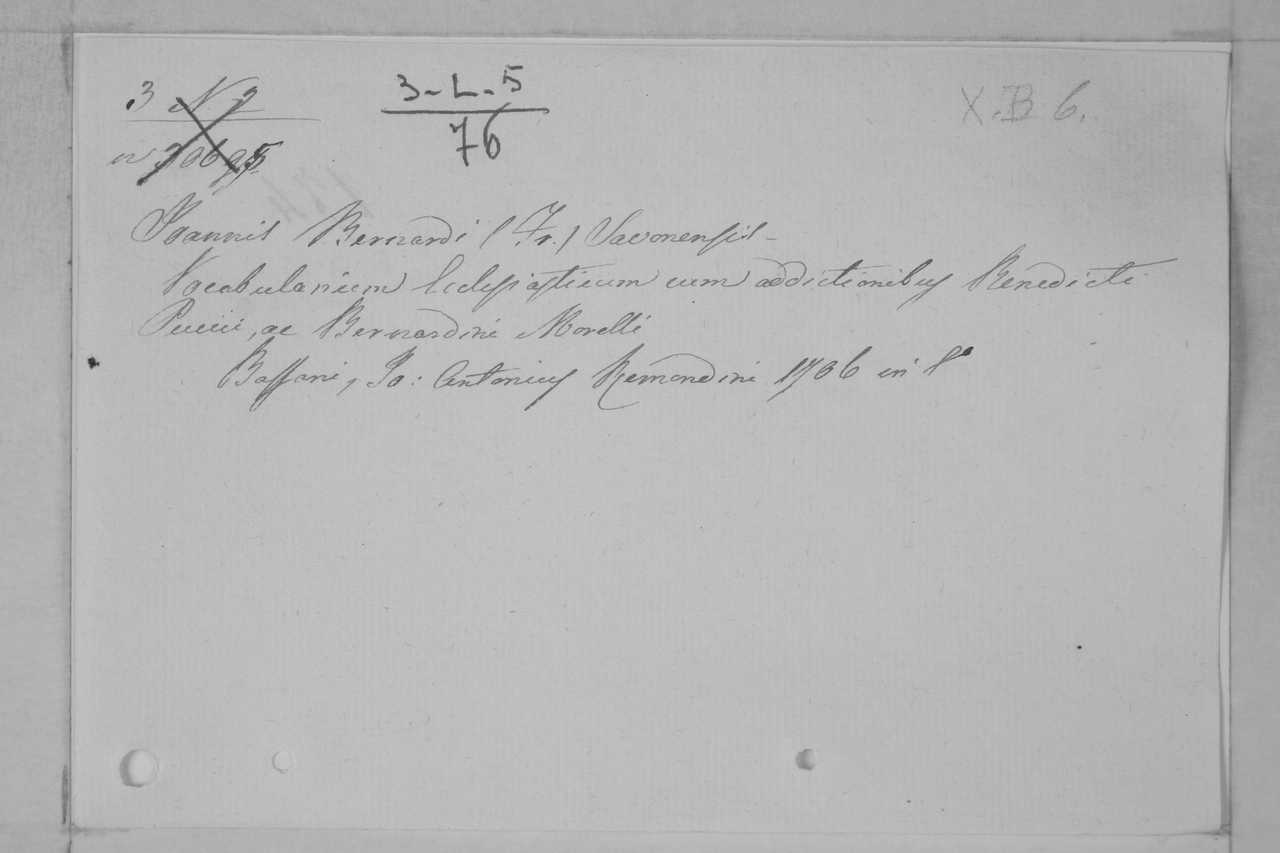 3 N 2
3-L-5
76
X.B 6.
Joannis Bernardi (Fr.) Savonensis -
Vocabularium Eclesiasticum cum addictionibus Benedicti
Puccii, ac Bernardini Morelli
Bassani, Jo: Antonius Remondini 1706 in 8°